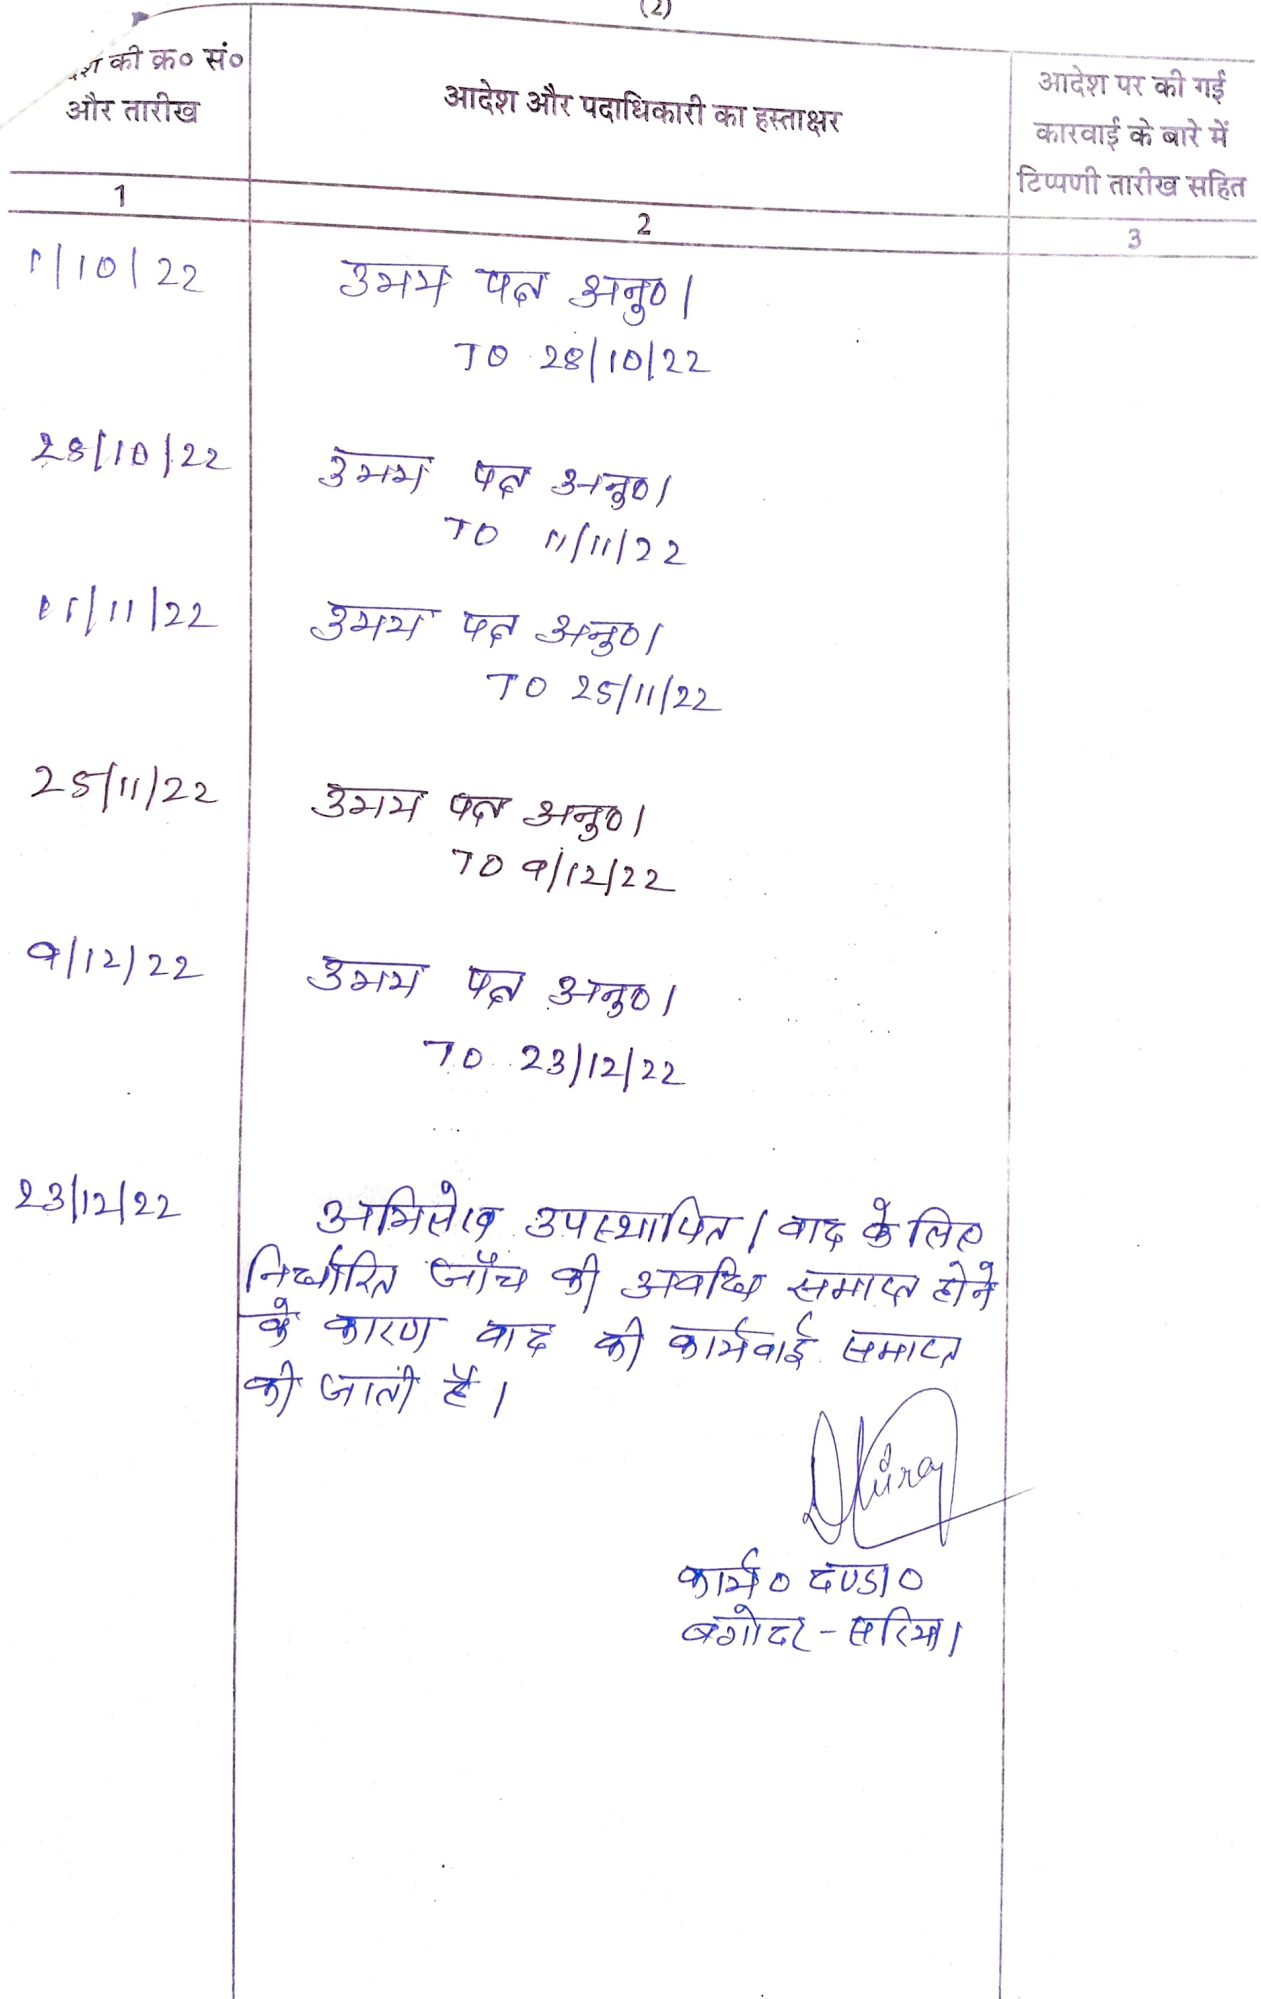 (2)
की क्र० सं०
और तारीख
आदेश और पदाधिकारी का हस्ताक्षर
आदेश पर की गई
कारवाई के बारे में
टिप्पणी तारीख सहित
1
2
3
/10/22
उभय पक्ष अनु०।
TO 28/10/22
28/10/22
उभय पक्ष अनु०।
TO 11/11/22
11/11/22
उभय पक्ष अनु०।
TO 25/11/22
25/11/22
उभय पक्ष अनु०।
TO 9/12/22
9/12/22
उभय पक्ष अनु०।
TO 23/12/22
23/12/22
अभिलेख उपस्थापित। वाद के लिए
निर्धारित जाँच की अवधि समाप्त होने
के कारण वाद की कार्यवाई समाप्त
की जाती है।
कार्य० दण्डा०
बगोदर-सरिया।